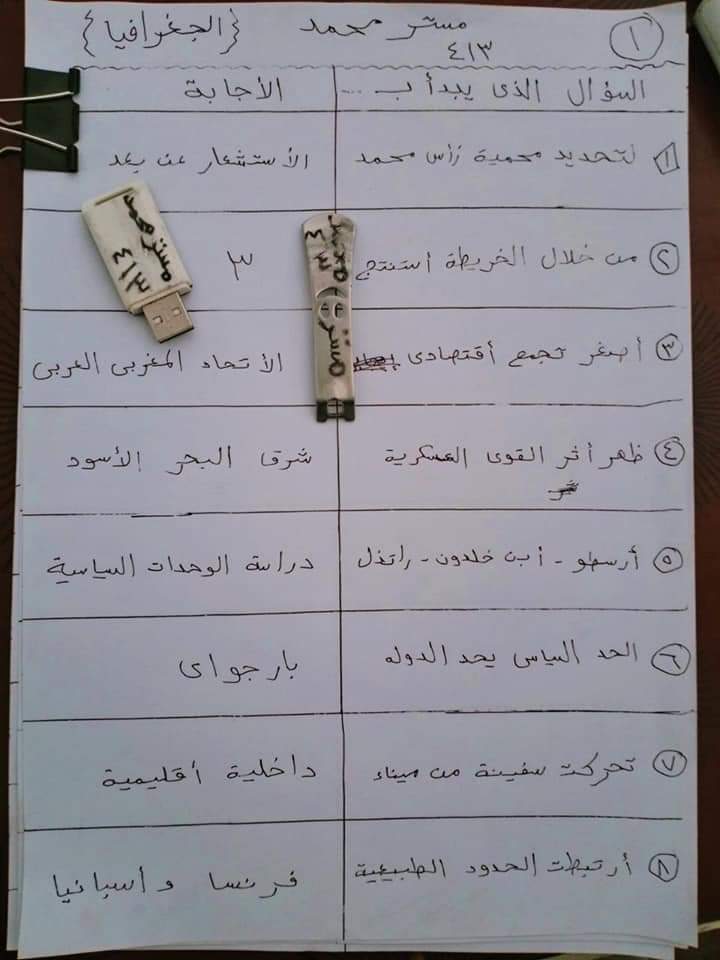 ١ مستر محمد {الجغرافيا}
٤١٣
السؤال الذى يبدأ ب ... الأجابة
١ لتحديد محمية رأس محمد الأستشعار عن بعد
٢ من خلال الخريطة أستنتج ٣
مستر محمد
٤١٣
مستر محمد
٤١٣
٣ أصغر تجمع أقتصادى الأتحاد المغربى العربى
٤ ظهر أثر القوى العسكرية شرق البحر الأسود
٥ أرسطو - أبن خلدون - راتذل دراسة الوحدات السياسية
٦ الحد السياس يحد الدوله بارجواى
٧ تحركت سفينة من ميناء داخلية أقليمية
٨ أرتبطت الحدود الطبيعية فرنسا وأسبانيا